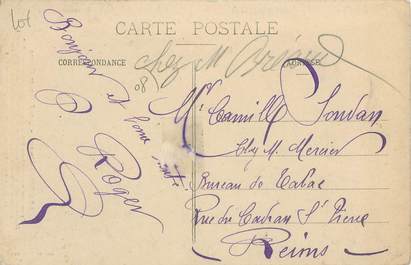 Lot
CARTE POSTALE
CORRESPONDANCE
ADRESSE
chez M Bréand
08
Bonjour et bonne
Roger
Mr Camille Soudan
Chez M. Mercier
Bureau de Tabac
Rue du Cadran St Pierre
Reims